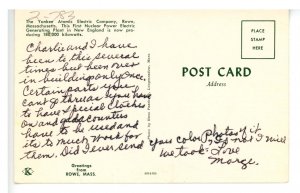 The Yankee Atomic Electric Company, Rowe,
Massachusetts. This First Nuclear Power Electric
Generating Plant in New England is now pro-
ducing 180,000 kilowatts.
PLACE
STAMP
HERE
POST CARD
Address
Charlie and I have
been to this several
times but been over
in building only once.
Certain parts you
can go thru as you have
to have special clothes
on and geiger counters
have to be used and
its to much work for
them. Did I ever send you color photos of it
if not I will
we took. Love
Marge.
Greetings
from
ROWE, MASS.